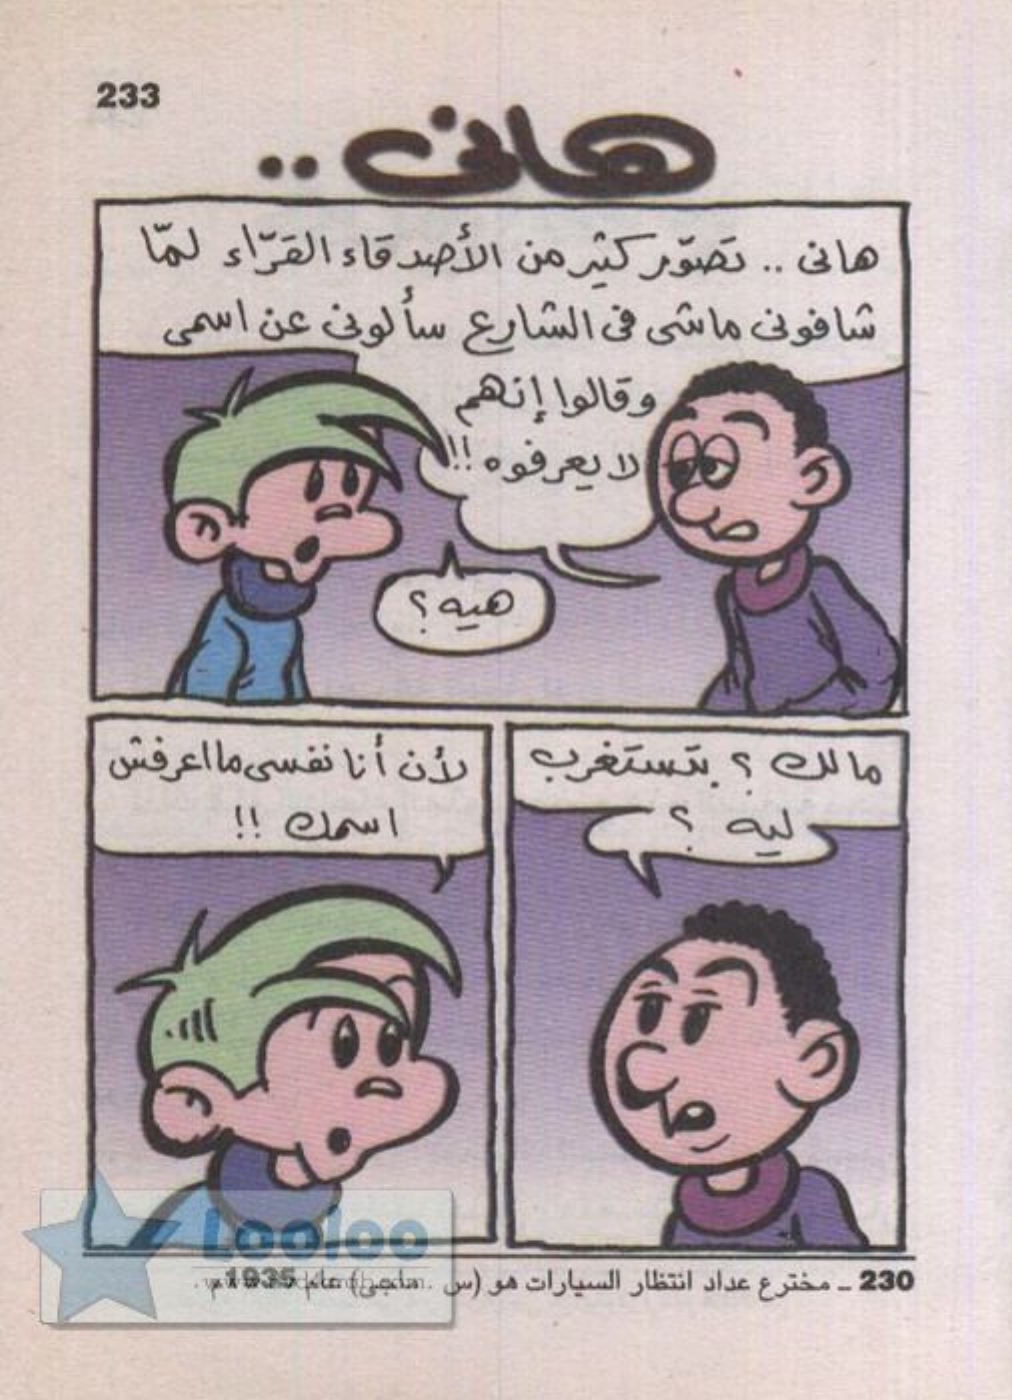 233
هانى ..
هانى .. تصوّر كثير من الأصدقاء القرّاء لمّا
شافونى ماشى فى الشارع سألونى عن اسمى
وقالوا إنهم
لا يعرفوه !!
هيه ؟
مالك ؟ بتستغرب
ليه ؟
لأن أنا نفسى ما اعرفش
اسمك !!
230 ـ مخترع عداد انتظار السيارات هو (س . ماجى) عام 1935م .
Looloo